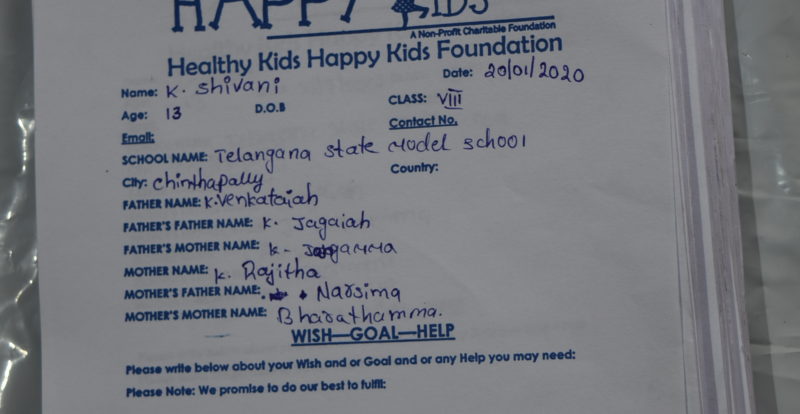 HAPPY KIDS
A Non-Profit Charitable Foundation
Healthy Kids Happy Kids Foundation
Date: 20/01/2020
Name: K. Shivani
Age: 13 D.O.B CLASS: VIII
Email: Contact No.
SCHOOL NAME: Telangana state Model school
City: Chinthapally Country:
FATHER NAME: K.Venkataiah
FATHER'S FATHER NAME: K. Jagaiah
FATHER'S MOTHER NAME: K-
MOTHER NAME: K. Rajitha
MOTHER'S FATHER NAME: Narsima
MOTHER'S MOTHER NAME: Bharathamma.
WISH—GOAL—HELP
Please write below about your Wish and or Goal and or any Help you may need:
Please Note: We promise to do our best to fulfil: